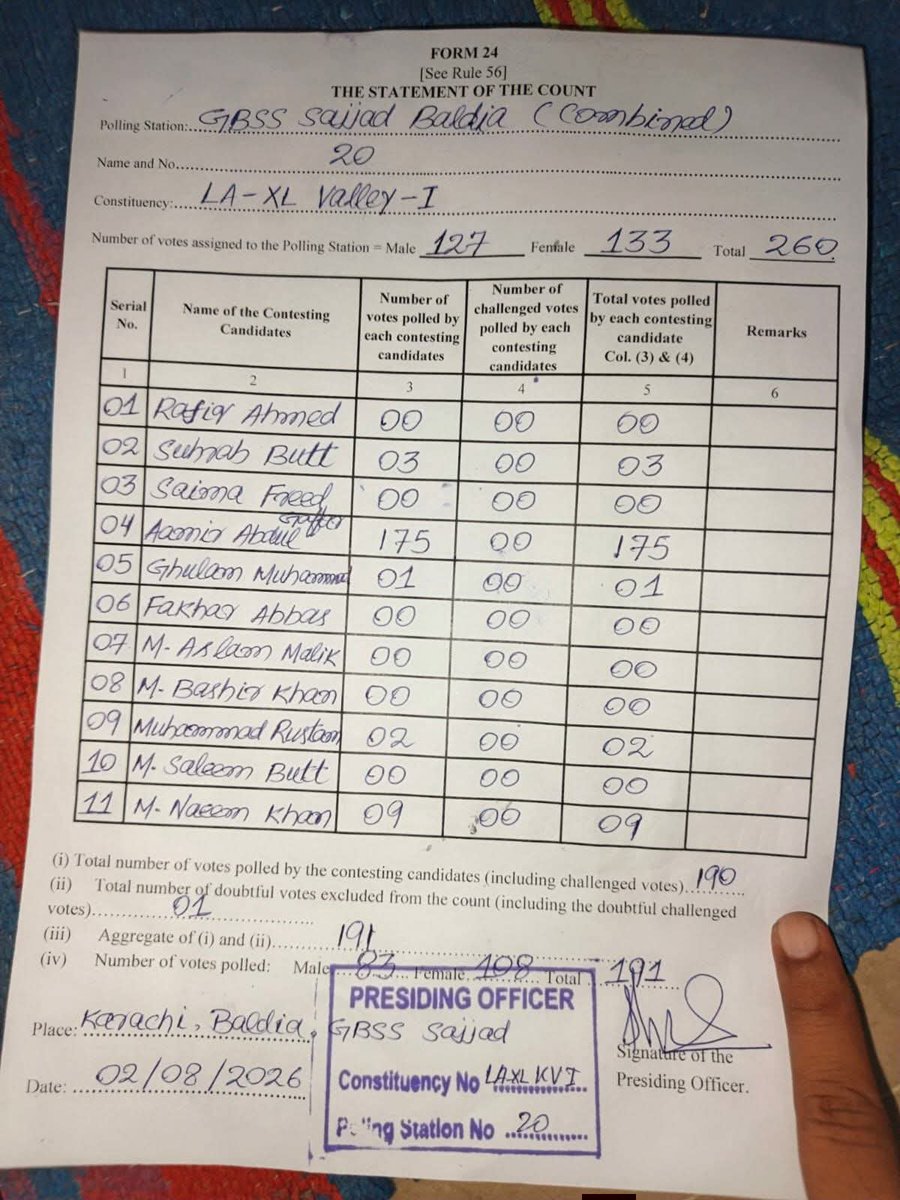 FORM 24
[See Rule 56]
THE STATEMENT OF THE COUNT
Polling Station: GBSS Sajjad Baldia (Combined)
Name and No. 20
Constituency: LA-XL Valley-I
Number of votes assigned to the Polling Station = Male 127 Female 133 Total 260
Serial No. Name of the Contesting Candidates Number of votes polled by each contesting candidates Number of challenged votes polled by each contesting candidates Total votes polled by each contesting candidate Col. (3) & (4) Remarks
1 2 3 4 5 6
01 Rafiq Ahmed 00 00 00
02 Suhrab Butt 03 00 03
03 Saima Freed 00 00 00
04 Aamir Abdul Gaffar 175 00 175
05 Ghulam Muhammad 01 00 01
06 Fakhar Abbas 00 00 00
07 M. Aslam Malik 00 00 00
08 M. Bashir Khan 00 00 00
09 Muhammad Rustam 02 00 02
10 M. Saleem Butt 00 00 00
11 M. Naeem Khan 09 00 09
(i) Total number of votes polled by the contesting candidates (including challenged votes) 190
(ii) Total number of doubtful votes excluded from the count (including the doubtful challenged
votes) 01
(iii) Aggregate of (i) and (ii) 191
(iv) Number of votes polled: Male 83 Female 108 Total 191
PRESIDING OFFICER
Place: Karachi, Baldia, GBSS Sajjad
Signature of the
Presiding Officer.
Date: 02/08/2026
Constituency No LA XL KV I
Polling Station No 20